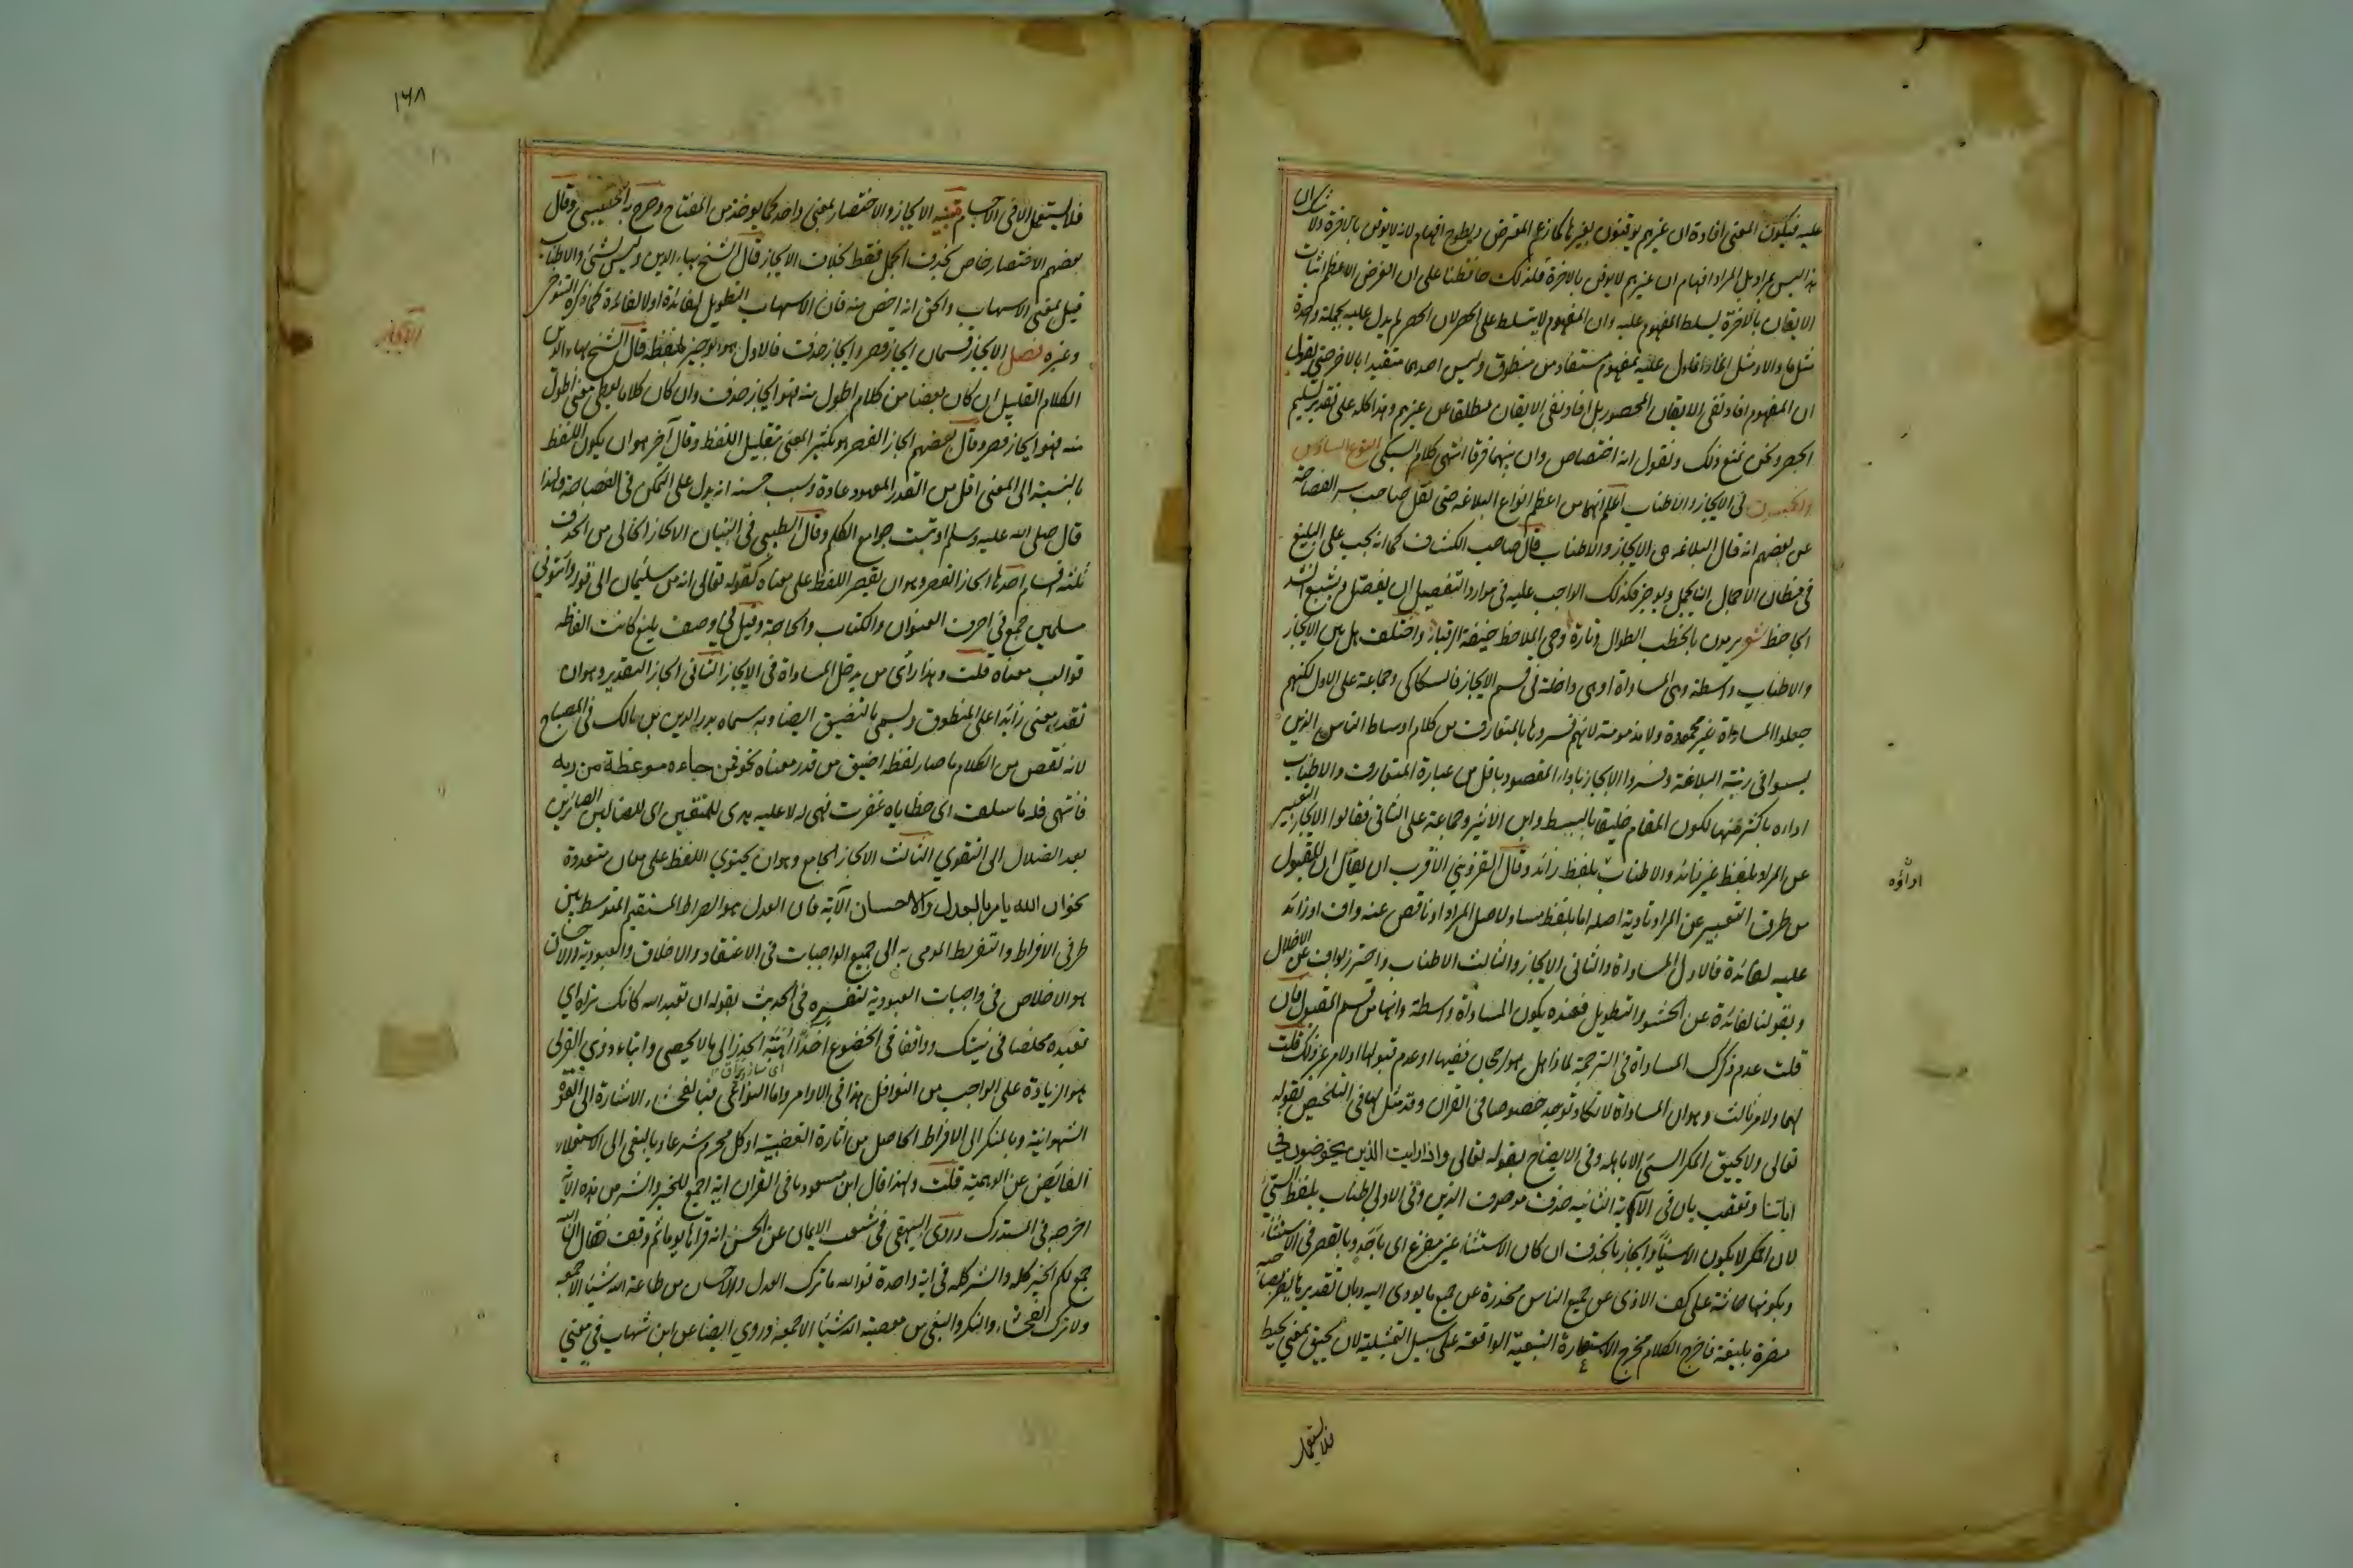 عليه فيكون المعنى افادة ان غيرهم يوقنون بغيرها كما زعم المعترض ويطرح افهام انه لا يوقن بالاخرة ولا شك ان
هذا ليس بمراد بل المراد افهام ان غيرهم لا يوقن بالاخرة فلذلك حافظنا على ان الغرض الاعظم اثبات
الايقان بالاخرة ليسلط المفهوم عليه وان المفهوم لا يتسلط على الحصر لان الحصر لم يدل عليه بجملة واحدة
مثل ما والا ومثل انما وانما دل عليه بمفهوم مستفاد من منطوق وليس احدهما متقيدا بالاخر حتى يقول
ان المفهوم افاد نفى الايقان المحصور بل افاد نفى الايقان مطلقا عن غيرهم وهذا كله على تقدير تسليم
الحصر ونحن نمنع ذلك ونقول انه اختصاص وان بينهما فرقا انتهى كلام السبكى النوع السادس
والخمسون فى الايجاز والاطناب اعلم انهما من اعظم انواع البلاغة حتى نقل صاحب سر الفصاحة
عن بعضهم انه قال البلاغة هى الايجاز والاطناب قال صاحب الكشاف كما انه يجب على البليغ
فى مظان الاجمال ان يجمل ويوجز فكذلك الواجب عليه فى موارد التفصيل ان يفصل ويشبع انشد
الجاحظ شعر يرمون بالخطب الطوال وتارة وحى الملاحظ خيفة الرقباء واختلف هل بين الايجاز
والاطناب واسطة وهى المساواة او هى داخلة فى قسم الايجاز فالسكاكى وجماعة على الاول لكنهم
جعلوا المساواة غير محمودة ولا مذمومة لانهم فسروها بالمتعارف من كلام اوساط الناس الذين
ليسوا فى رتبة البلاغة وفسروا الايجاز باداء المقصود باقل من عبارة المتعارف والاطناب
اداءه باكثر منها لكون المقام خليقا بالبسط وابن الاثير وجماعة على الثانى فقالوا الايجاز التعبير
عن المراد بلفظ غير زائد والاطناب بلفظ زائد وقال القزوينى الاقرب ان يقال ان المقبول
من طرق التعبير عن المراد تادية اصله اما بلفظ مساو لاصل المراد او ناقص عنه واف او زائد
عليه لفائدة فالاول المساواة والثانى الايجاز والثالث الاطناب واحترز بواف عن الاخلال
وبقولنا لفائدة عن الحشو والتطويل فعنده يكون المساواة واسطة وانها من قسم المقبول فان
قلت عدم ذكرك المساواة فى الترجمة لماذا هل هو لرجحان نفيها او عدم قبولها او لامر غير ذلك قلت
لهما ولامر ثالث وهو ان المساواة لا تكاد توجد خصوصا فى القران وقد مثل لها فى التلخيص بقوله
تعالى ولا يحيق المكر السيئ الا باهله وفى الايضاح بقوله تعالى واذا رايت الذين يخوضون فى
اياتنا وتعقب بان فى الآية الثانية حذف موصوف الذين وفى الاولى اطناب بلفظ السيئ
لان المكر لا يكون الا سيئا وايجاز بالحذف ان كان الاستثناء غير مفرغ اى باحد وبالقصر فى الاستثناء
وبكونها حاثة على كف الاذى عن جميع الناس محذرة عن جميع ما يودى اليه وبان تقديرها يضر بصاحبه
مضرة بليغة فاخرج الكلام مخرج الاستعارة التبعية الواقعة على سبيل التمثيلية لان يحيق بمعنى يحيط
اداؤه
فلا يستعمل
١٦٨
فلا يستعمل الا فى الاجسام تنبيه الايجاز والاختصار بمعنى واحد كما يوخذ من المفتاح وصرح به الطيبى وقال
بعضهم الاختصار خاص بحذف الجمل فقط بخلاف الايجاز قال الشيخ بهاء الدين وليس بشئ والاطناب
قيل بمعنى الاسهاب والحق انه اخص منه فان الاسهاب التطويل لفائدة او لا لفائدة كما ذكره التنوخى
وغيره فصل الايجاز قسمان ايجاز قصر وايجاز حذف فالاول هو الوجيز بلفظه قال الشيخ بهاء الدين
الكلام القليل ان كان بعضا من كلام اطول منه فهو ايجاز حذف وان كان كلاما يعطى معنى اطول
منه فهو ايجاز قصر وقال بعضهم ايجاز القصر هو تكثير المعنى بتقليل اللفظ وقال آخر هو ان يكون اللفظ
بالنسبة الى المعنى اقل من القدر المعهود عادة وسبب حسنه انه يدل على التمكن فى الفصاحة ولهذا
قال صلى الله عليه وسلم اوتيت جوامع الكلم وقال الطيبى فى التبيان الايجاز الخالى من الحذف
ثلثة اقسام احدها ايجاز القصر وهو ان يقصر اللفظ على معناه كقوله تعالى انه من سليمان الى قوله واتونى
مسلمين جمع فى احرف العنوان والكتاب والحاجة وقيل فى وصف بليغ كانت الفاظه
قوالب معناه قلت وهذا رأى من يدخل المساواة فى الايجاز الثانى ايجاز التقدير وهو ان
تقدر معنى زائدا على المنطوق ويسمى بالتضييق ايضا وبه سماه بدر الدين بن مالك فى المصباح
لانه نقص من الكلام ما صار لفظه اضيق من قدر معناه نحو فمن جاءه موعظة من ربه
فانتهى فله ما سلف اى خطاياه غفرت فهى له لا عليه هدى للمتقين اى للضالين الصائرين
بعد الضلال الى التقوى الثالث الايجاز الجامع وهو ان يحتوى اللفظ على معان متعددة
نحو ان الله يامر بالعدل والاحسان الآية فان العدل هو الصراط المستقيم المتوسط بين
طرفى الافراط والتفريط المومى به الى جميع الواجبات فى الاعتقاد والاخلاق والعبودية والاحسان
هو الاخلاص فى واجبات العبودية لتفسيره فى الحديث بقوله ان تعبد الله كانك تراه اى
تعبده مخلصا فى نيتك وواقفا فى الخضوع آخذا اهبة الحذر الى ما لا يحصى وايتاء ذوى القربى
هو الزيادة على الواجب من النوافل هذا فى الاوامر واما النواهى فبالفحشاء الاشارة الى القوة
الشهوانية وبالمنكر الى الافراط الحاصل من اثارة الغضبية او كل محرم شرعا وبالبغى الى الاستعلاء
الفايض عن الوهمية قلت ولهذا قال ابن مسعود ما فى القران اية اجمع للخير والشر من هذه الاية
اخرجه فى المستدرك وروى البيهقى فى شعب الايمان عن الحسن انه قراها يوما ثم وقف فقال ان الله
جمع لكم الخير كله والشر كله فى اية واحدة فوالله ما ترك العدل والاحسان من طاعة الله شيئا الا جمعه
ولا ترك الفحشاء والمنكر والبغى من معصية الله شيئا الا جمعه وروى ايضا عن ابن شهاب فى معنى
الايجاز